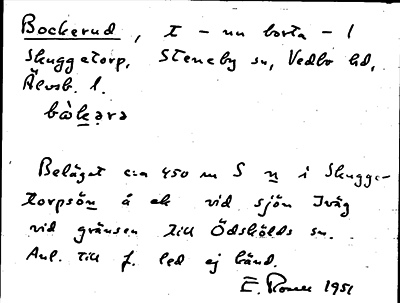 Bockerud, t – nu borta – l
Skuggetorp, Steneby sn, Vedbo hd,
Älvsb. l.
bὼkərə
Beläget c:a 450 m S n i Skugge-
torpsön å ek vid sjön Iväg
vid gränsen till Ödskölds sn.
Anl. till f. led ej känd.
E. 1951